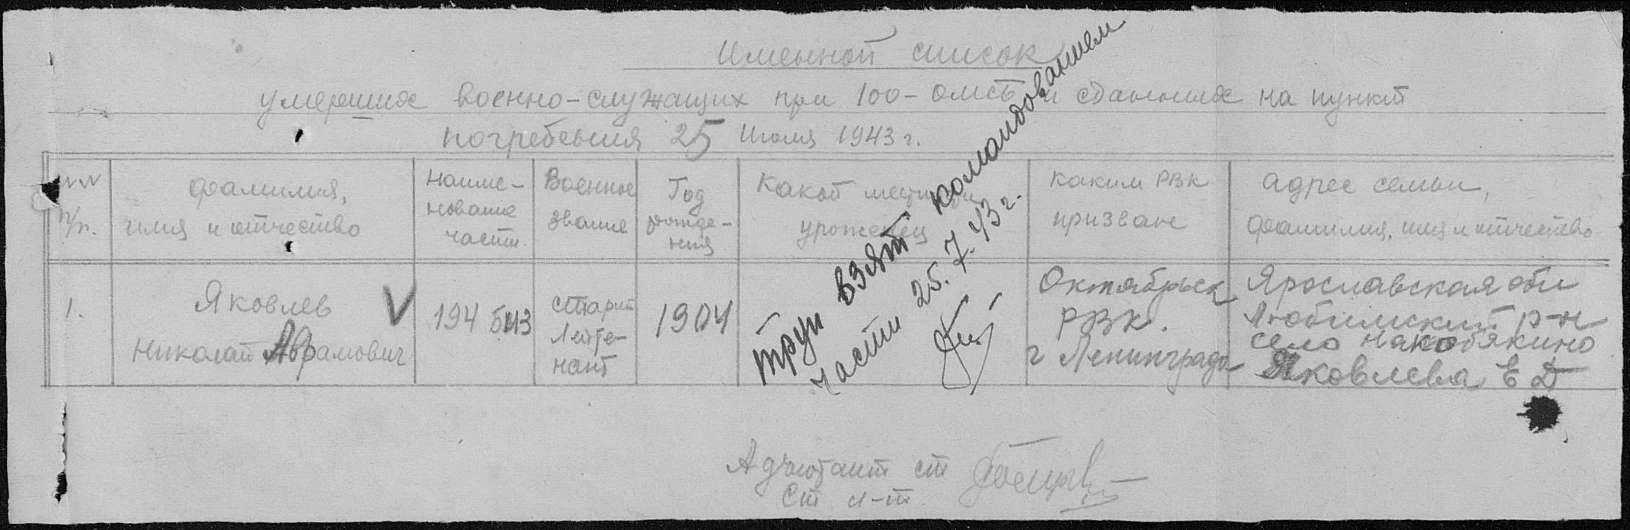 Именной список
умерших военно-служащих при 100-омсб и сданных на пункт
погребения 25 Июля 1943 г.
№№ п/п.
фамилия, имя и отчество
Наиме-нование части
Военное звание
Год рожде-ния
Какой местности урожен­ец
Каким РВК призван
адрес семьи, фамилия, имя и отчество
1.
Яковлев
Николай Абрамович
V
194 БИЗ
Старш
Лейте-
нант
1904
труп взят командованием
части 25.7.43 г.
Октябрьск
РВК.
г Ленинграда
Ярославская обл
Любимский р-н
село
Яковлева Е Д
Адъютант ст
Ст л-т